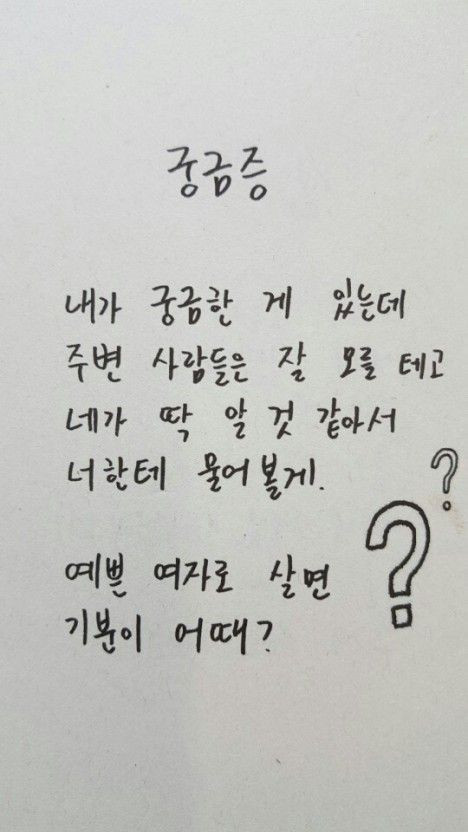 궁금증
내가 궁금한 게 있는데
주변 사람들은 잘 모를 테고
네가 딱 알 것 같아서
너한테 물어볼게.
?
?
예쁜 여자로 살면
기분이 어때?